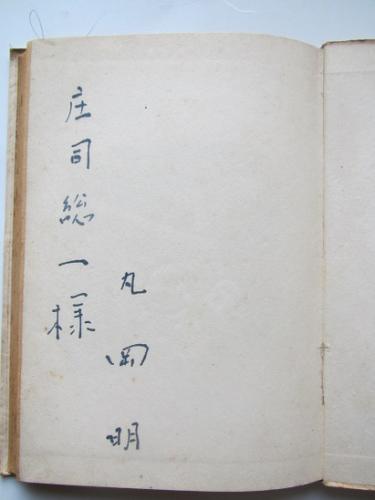 丸岡明
庄司総一様